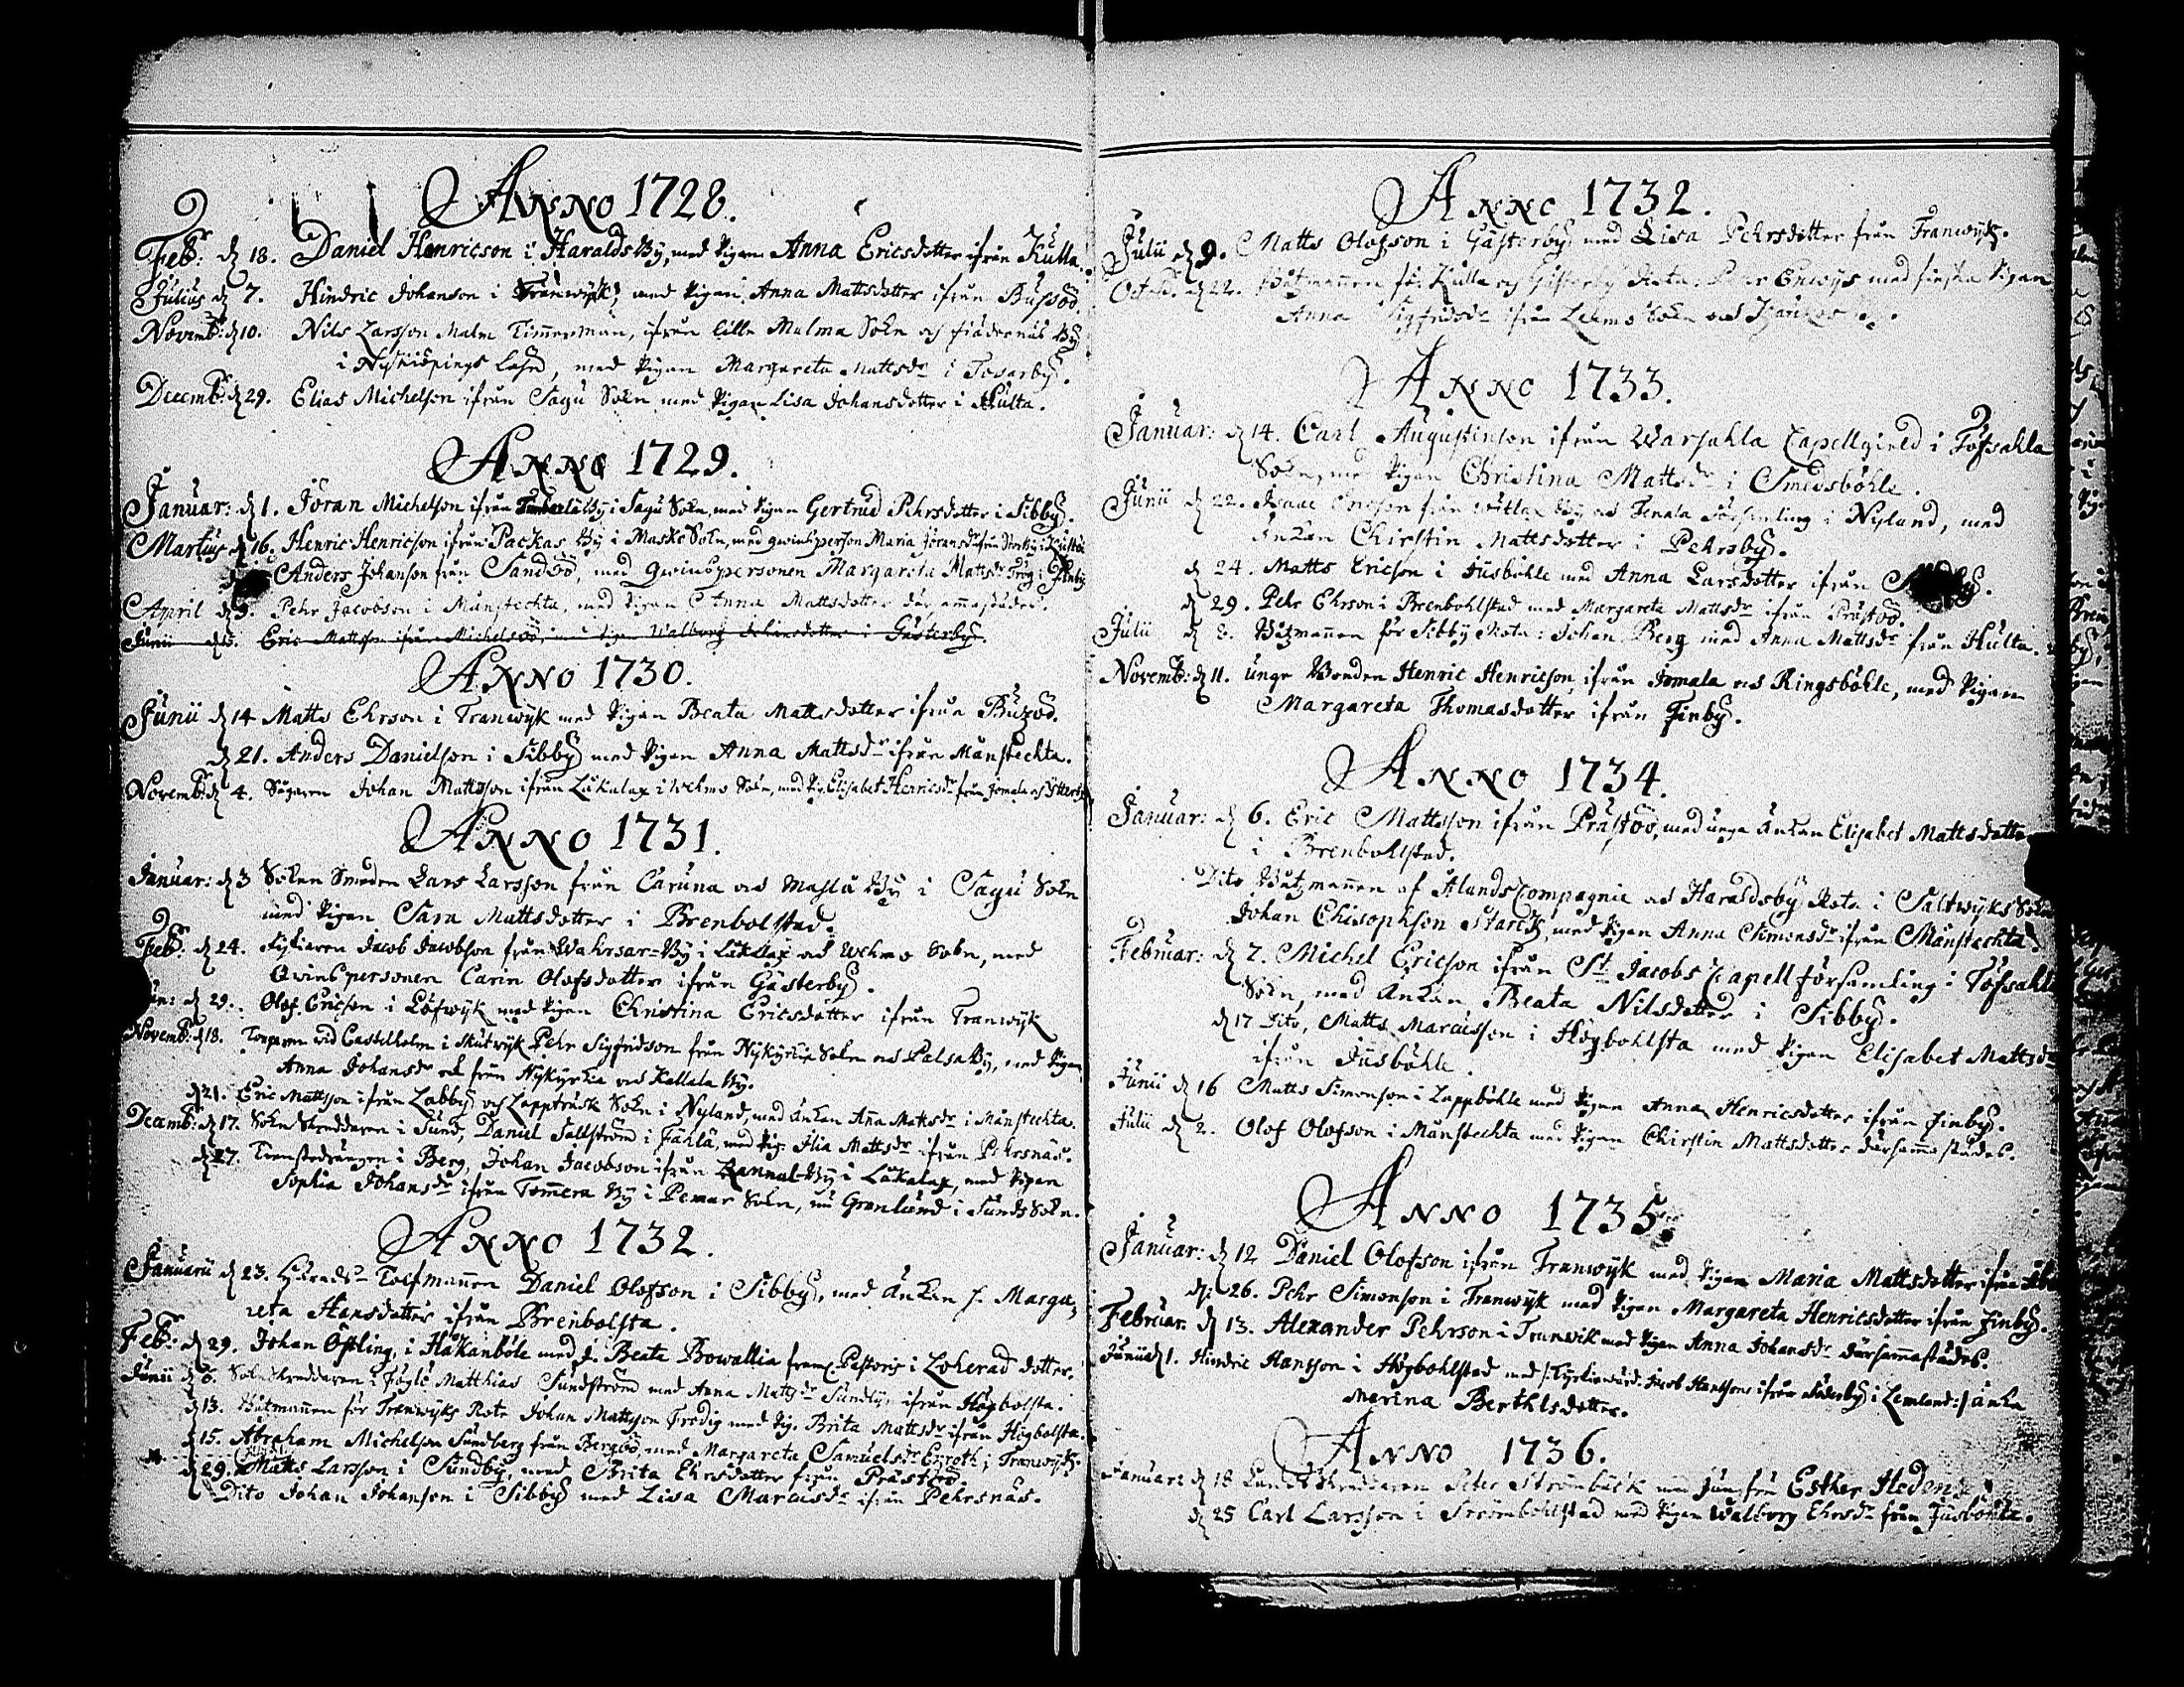 Anno 1728.
Feb: d 18. Daniel Henricson i Haraldsby, med Pigan Anna Ericsdotter ifrån Kulla.
Julius d 7. Hindric Johanson i Tranwyk, med Pigan Anna Mattsdotter ifrån Bussöö.
Novemb: d 10. Nils Larsson Malm Timerman, ifrån lilla Malma Sokn och
i Nyköpings lähn, med Pigan Margareta Mattsdr i Tosarby.
Decemb: d 29. Elias Michelson ifrån Sagu Sokn med Pigan Lisa Johansdotter i Hulta.
Anno 1729.
Januar: d 1. Jöran Michelson ifrån i Sagu Sokn, med Pigan Gertrud Pehrsdotter i Sibby.
Martius d 16. Henric Henricson ifrån Packas By i Masko Sokn, med qwinsperson Maria Jöransdr från
Anders Johanson från Sandöö, med qwinspersonen Margareta Mattsdr i Finby
April d 9. Pehr Jacobson i Månstechta, med Pigan Anna Mattsdotter därsammastädes.
Junii Eric Mattsson ifrån Michelsöö, med Pigan Walborg Johansdotter i Gästerby.
Anno 1730.
Junii d 14 Matts Ehrson i Tranwyk med Pigan Beata Mattsdotter ifrån Buzöö.
d 21. Anders Danielson i Sibby med Pigan Anna Mattsdr ifrån Månstechta.
Novemb: d 4. Sågaren Johan Mattsson ifrån Lukalax i Wehmo Sokn, med Pig. Elisabet Henricsdr från Jomala och Ytterby
Anno 1731.
Januar: d 3 Sokn Smeden Lars Larsson från Caruna och Masla By i Sagu Sokn
med Pigan Sara Mattsdotter i Brenbolstad.
Feb: d 24. Jacob Jacobson från Wahrsar-By i Lukalax och Wehmo Sokn, med
Qwinspersonen Carin Olofsdotter ifrån Gästerby.
d 29. Olof Ericson i Löfwyk med Pigan Christina Ericsdotter ifrån Tranwyk
Novemb: d 18. wid Castelholm i Skutwyk Pehr Sigfridson från Nykyrkia Sokn och Palsa By, med Pigan
Anna Johansdr från Nykyrkia och Kallala By.
d 21. Eric Mattsson ifrån Labby och Lappträsk Sokn i Nyland, med Änkan Anna Mattsdr i Månstechta.
Decemb: d 17. Sokn Skreddaren i Sund, Daniel Sallström i med Pig. Lisa Mattsdr ifrån Pehrsnäs.
d 27. i Berg, Johan Jacobson ifrån i Lukalax, med Pigan
Sophia Johansdr ifrån Tomera By i Pemar Sokn, nu Grenlund i Sunds Sokn.
Anno 1732.
Januarii d 23. Härads Tolfmannen Daniel Olofson i Sibby, med Änkan h. Marga,
reta Hansdotter ifrån Brenbolsta.
Feb: d 29. Johan Öfling, i Håkanböle med J. Beata Bowallia fram: Pastoris i Loherad dotter.
Junii d 6. Sokn Skreddaren i Föglö Matthias Sundström med Anna Mattsdr ifrån Högbolsta.
d 13. Båtmannen för Tranwyks Rote Johan Mattsson Frodig med Pig. Brita Mattsdr ifrån Högbolsta.
d 15. Abraham Michelson Sundberg från Bergöö med Margareta Samuelsdr Enroth i Tranwyk.
d 29. Matts Larsson i Sundby, med Brita Ehrsdotter från Prästöö.
Dito Johan Johanson i Sibby med Lisa Marcusdr ifrån Pehrsnäs.
Anno 1732.
Julii d 9. Matts Olofson i Gästerby med Lisa Pehrsdotter från Tranwyk.
Octob. d 22. Båtzmannen för Kulla och Gästerby Rota: med finska Pigan
Anna Sigfridsdr ifrån Lehmo Sokn och
Anno 1733.
Januar: d 14. Carl Augustinson ifrån Warsahla Capellgield i Töfsahla
Sokn, med Pigan Christina Mattsdr i Smedsböhle.
Junii d 22. Isaac Ericson från By och Tenala Församling i Nyland, med
Änkan Chirstin Mattsdotter i Pehrsby.
d 24. Matts Ericson i Jusböhle med Anna Larsdotter ifrån
d 29. Pehr Ehrson i Brenbohlstad med Margareta Mattsdr ifrån Prästöö.
Julii d 8. Båtzmannen för Sibby Rota: Johan Berg med Anna Mattsdr från Hulta.
Novemb: d 11. unge Bonden Henric Henricson ifrån Jomala och Ringsböhle, med Pigan
Margareta Thomasdotter ifrån Finby.
Anno 1734.
Januar: d 6. Eric Mattsson ifrån Prästöö, med unga Änkan Elisabet Mattsdotter
i Brenbollstad.
Dito Båtzmannen af Ålands Compagnie och Haraldsby Rota i Saltwyks Sokn
Johan Chisophson Starck, med Pigan Anna Simonsdr ifrån Månstechta.
Februar: d 7. Michel Ericson ifrån St Jacobs Capell församling i Töfsahla
Sokn, med Änkan Beata Nilsdotter i Sibby.
d 17 Dito, Matts Marcusson i Högbohlsta med Pigan Elisabet Mattsdr
ifrån Jusböhle.
Junii d 16 Matts Simonson i Lappböhle med Pigan Anna Henricsdotter ifrån Finby.
Julii d 2. Olof Olofson i Månstechta med Pigan Chirstin Mattsdotter därsammastädes.
Anno 1735.
Januar: d 12 Daniel Olofson ifrån Tranwyk med Pigan Maria Mattsdotter ifrån
d: 26. Pehr Simonson i Tranwyk med Pigan Margareta Henricsdotter ifrån Finby.
Februar. d 13. Alexander Pehrson i Tranwik med Pigan Anna Johansdr därsammastädes.
Junii d 1. Hindric Hansson i Högbohlstad med /: Kyrkiowärd: Jacob Hanssons ifrån Söderby i Lemland :/ Änka
Marina Berthlsdotter.
Anno 1736.
Januari d 18 Peter Strömbäck med Jungfru Esther Hedenia
d 25 Carl Larsson i Strömbohlstad med Pigan Walborg Ehrsdr från Jusböhle.